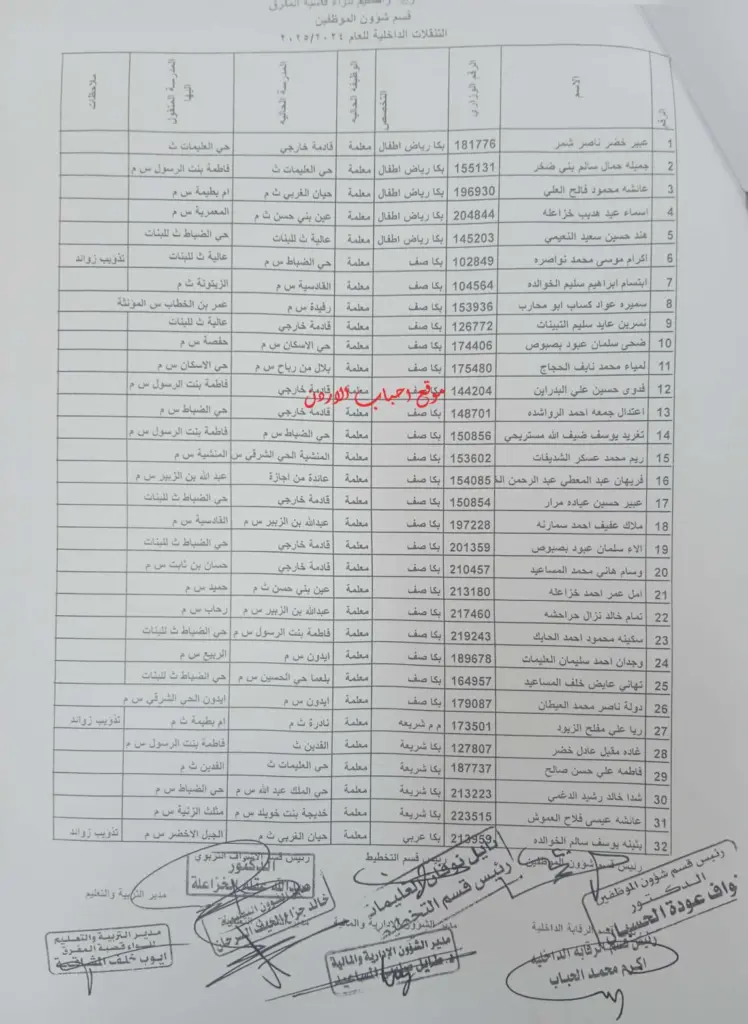 قسم شؤون الموظفين
التنقلات الداخلية للعام ٢٠٢٥/٢٠٢٤
الرقم الاسم الرقم الوزاري التخصص الوظيفه الحاليه المدرسة الحاليه المدرسة المنقول اليها ملاحظات
1 عبير خضر ناصر شمر 181776 بكا رياض اطفال معلمة قادمة خارجي حي العليمات ث
2 جميله حمال سالم بني صخر 155131 بكا رياض اطفال معلمة حي العليمات ث فاطمة بنت الرسول س م
3 عائشه محمود فالح العلي 196930 بكا رياض اطفال معلمة حيان الغربي ث م ام بطيمة س م
4 اسماء عيد هديب خزاعله 204844 بكا رياض اطفال معلمة عين بني حسن ث م المعمرية س م
5 هند حسين سعيد النعيمي 145203 بكا رياض اطفال معلمة عالية ث للبنات حي الضباط ث للبنات
6 اكرام موسى محمد نواصره 102849 بكا صف معلمة حي الضباط س م عالية ث للبنات تذويب زوائد
7 ابتسام ابراهيم سليم الخوالده 104564 بكا صف معلمة القادسية س م الزيتونة ث م
8 سميره عواد كساب ابو محارب 153936 بكا صف معلمة رفيدة س م عمر بن الخطاب س المؤنثة
9 نسرين عايد سليم الثبيتات 126772 بكا صف معلمة قادمة خارجي عالية ث للبنات
10 ضحى سلمان عبود بصبوص 174406 بكا صف معلمة حي الاسكان س م حفصة س م
11 لمياء محمد نايف الحجاج 175480 بكا صف معلمة بلال من رباح س م حي الاسكان س م
12 فدوى حسين علي البدراين 144204 بكا صف معلمة قادمة خارجي فاطمة بنت الرسول س م
موقع احباب الاردن
13 اعتدال جمعه احمد الرواشده 148701 بكا صف معلمة قادمة خارجي حي الضباط س م
14 تغريد يوسف ضيف الله مستريحي 150856 بكا صف معلمة حي الضباط س م فاطمة بنت الرسول س م
15 ريم محمد عسكر الشديفات 153602 بكا صف معلمة المنشية الحي الشرقي س م المنشية س م
16 فريهان عبد المعطي عبد الرحمن 154085 بكا صف معلمة عائدة من اجازة عبد الله بن الزبير س م
17 عبير حسين عياده مرار 150854 بكا صف معلمة قادمة خارجي حي الضباط ث للبنات
18 ملاك عفيف احمد سمارنه 197228 بكا صف معلمة عبدالله بن الزبير س م القادسية س م
19 الاء سلمان عبود بصبوص 201359 بكا صف معلمة قادمة خارجي حي الضباط ث للبنات
20 وسام هاني محمد المساعيد 210457 بكا صف معلمة قادمة خارجي حسان بن ثابت س م
21 امل عمر احمد خزاعله 213180 بكا صف معلمة عين بني حسن ث م حميد س م
22 تمام خالد نزال جراحشه 217460 بكا صف معلمة عبدالله بن الزبير س م رحاب س م
23 سكينه محمود احمد الحايك 219243 بكا صف معلمة فاطمة بنت الرسول س م حي الضباط ث للبنات
24 وجدان احمد سليمان العليمات 189678 بكا صف معلمة ايدون س م الربيع س م
25 تهاني عايض خلف المساعيد 164957 بكا صف معلمة بلعما حي الحسين س م حي الضباط ث للبنات
26 دولة ناصر محمد العيطان 179087 بكا صف معلمة ايدون س م ايدون الحي الشرقي س م
27 ربا علي مفلح الزيود 173501 م م شريعه معلمة نادرة ث م ام بطيمة ث م تذويب زوائد
28 غاده مقبل عادل خضر 127807 بكا شريعة معلمة الفدين ث فاطمة بنت الرسول س م
29 فاطمه علي حسن صالح 187737 بكا شريعة معلمة حي العليمات ث الفدين ث م
30 شدا خالد رشيد الدغمي 213223 بكا شريعة معلمة حي الملك عبد الله س م حي الضباط س م
31 عائشه عيسى فلاح العموش 223515 بكا شريعة معلمة خديجة بنت خويلد س م مثلث الزنية س م
32 بثينه يوسف سالم الخوالده 213959 بكا عربي معلمة حيان الغربي ث م الجبل الاخضر س م تذويب زوائد
رئيس قسم شؤون الموظفين رئيس قسم التخطيط رئيس قسم الاشراف التربوي مدير التربية والتعليم
رئيس قسم شؤون الموظفين
الدكتور
نواف عودة الحسبان
نايل نوفان العليمات
رئيس قسم التخطيط
الدكتور
عبدالله عقله الخزاعلة
رئيس قسم الرقابة الداخلية
اكرم محمد الحباب
مدير الشؤون الإدارية والمالية
مدير التربية والتعليم
للواء قصبة المفرق
ايوب خلف المشاقبة